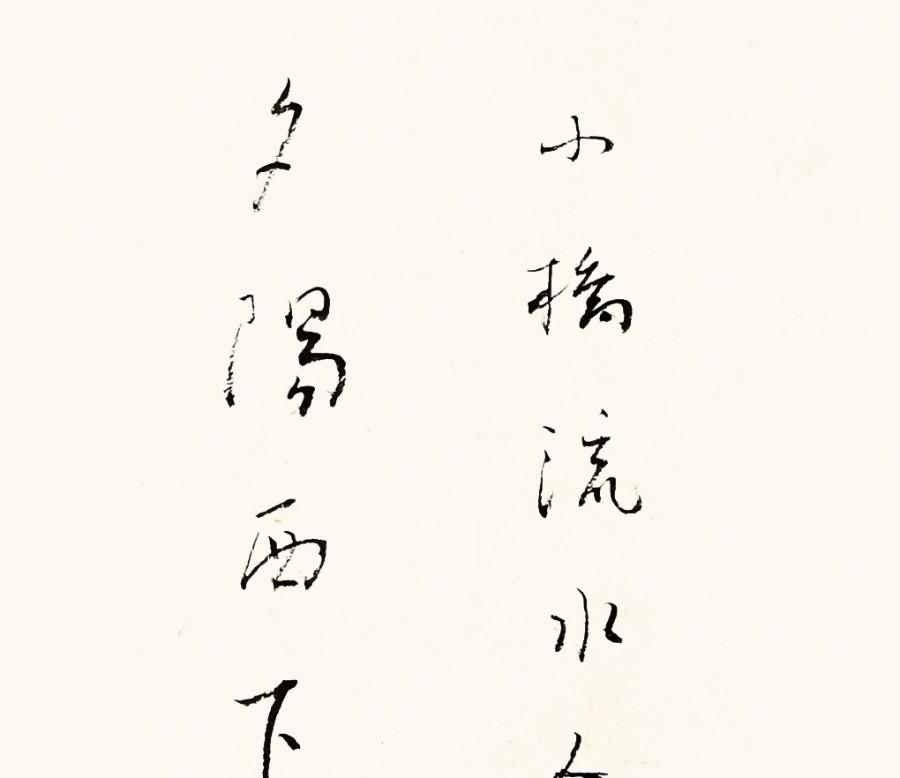 小橋流水
夕陽西下